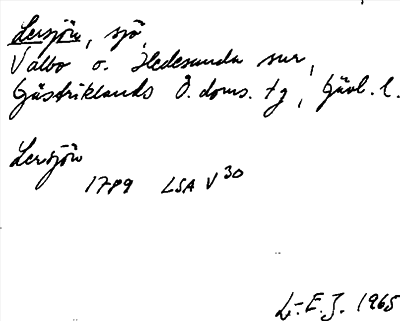 Lersjön, sjö,
Valbo o. Hedesunda snr,
Gästriklands Ö. doms. tg, Gävl. l.
Lersjön
1789 LSA V 30
L-E. J. 1965